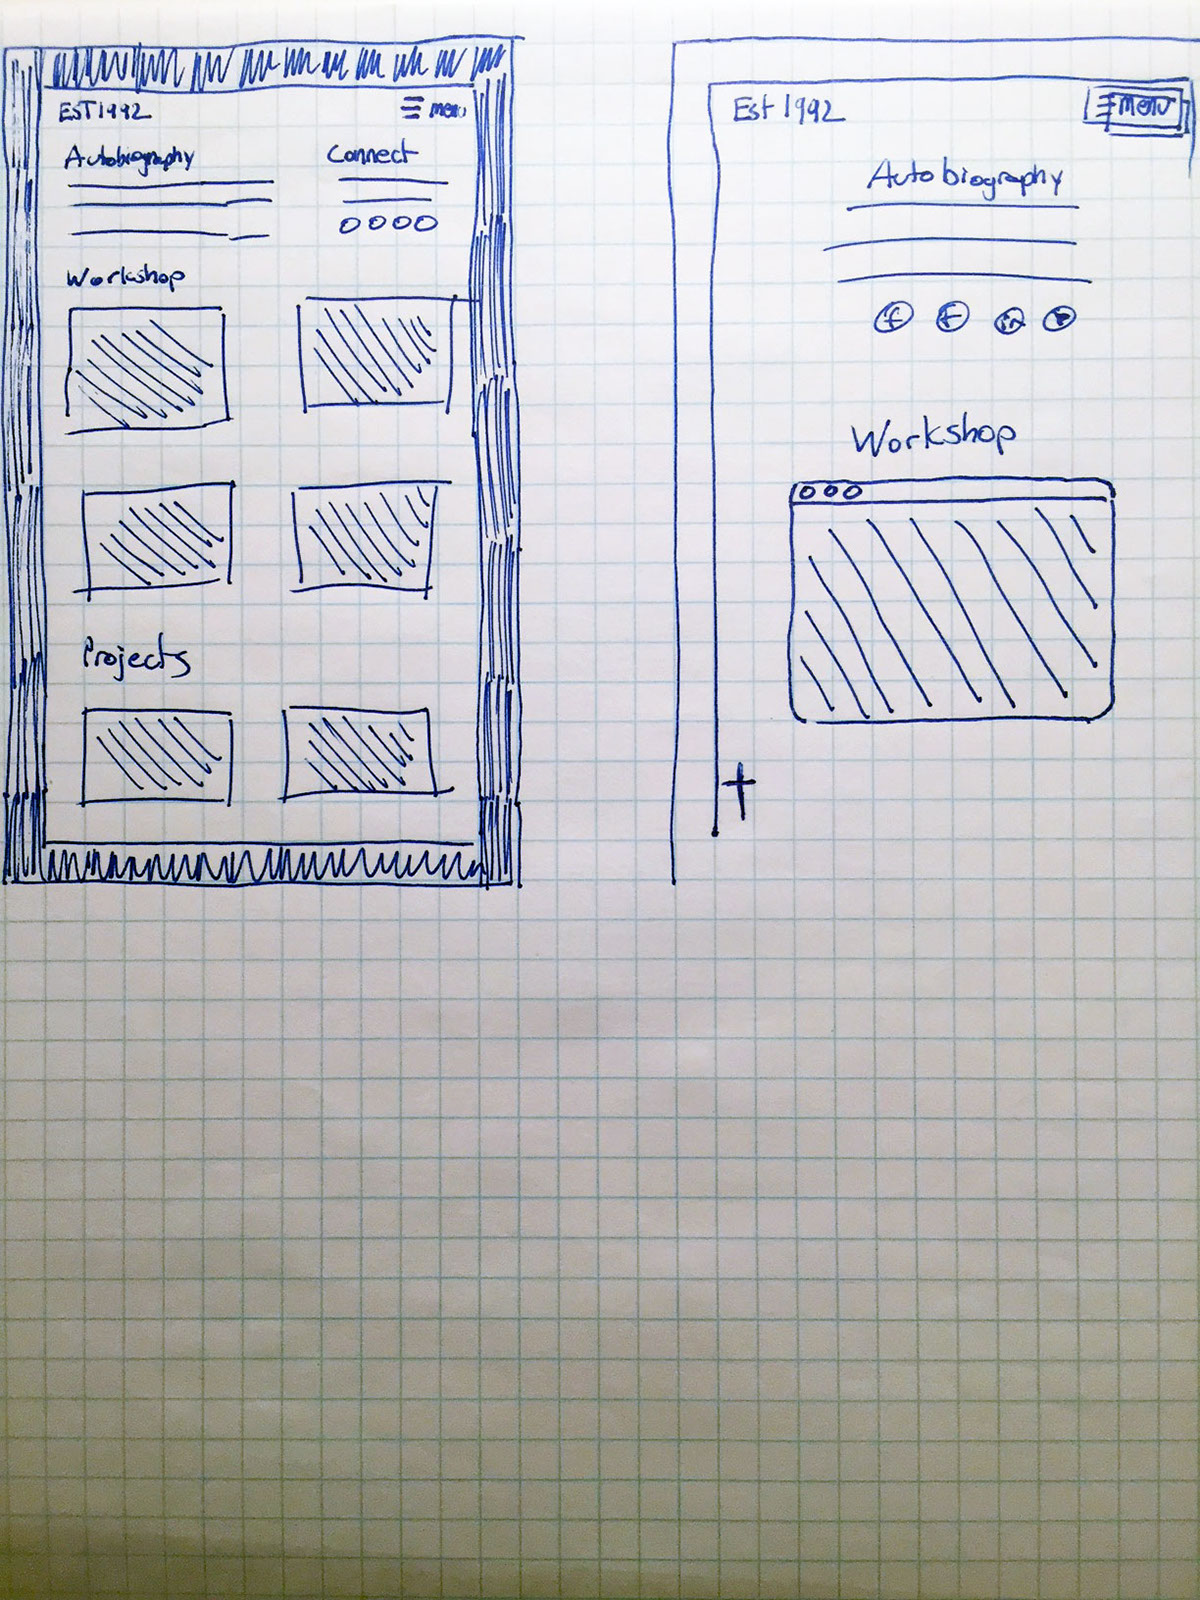 EST 1992
menu
Autobiography
Connect
Workshop
Projects
Est 1992
menu
Autobiography
f
t
in
Workshop